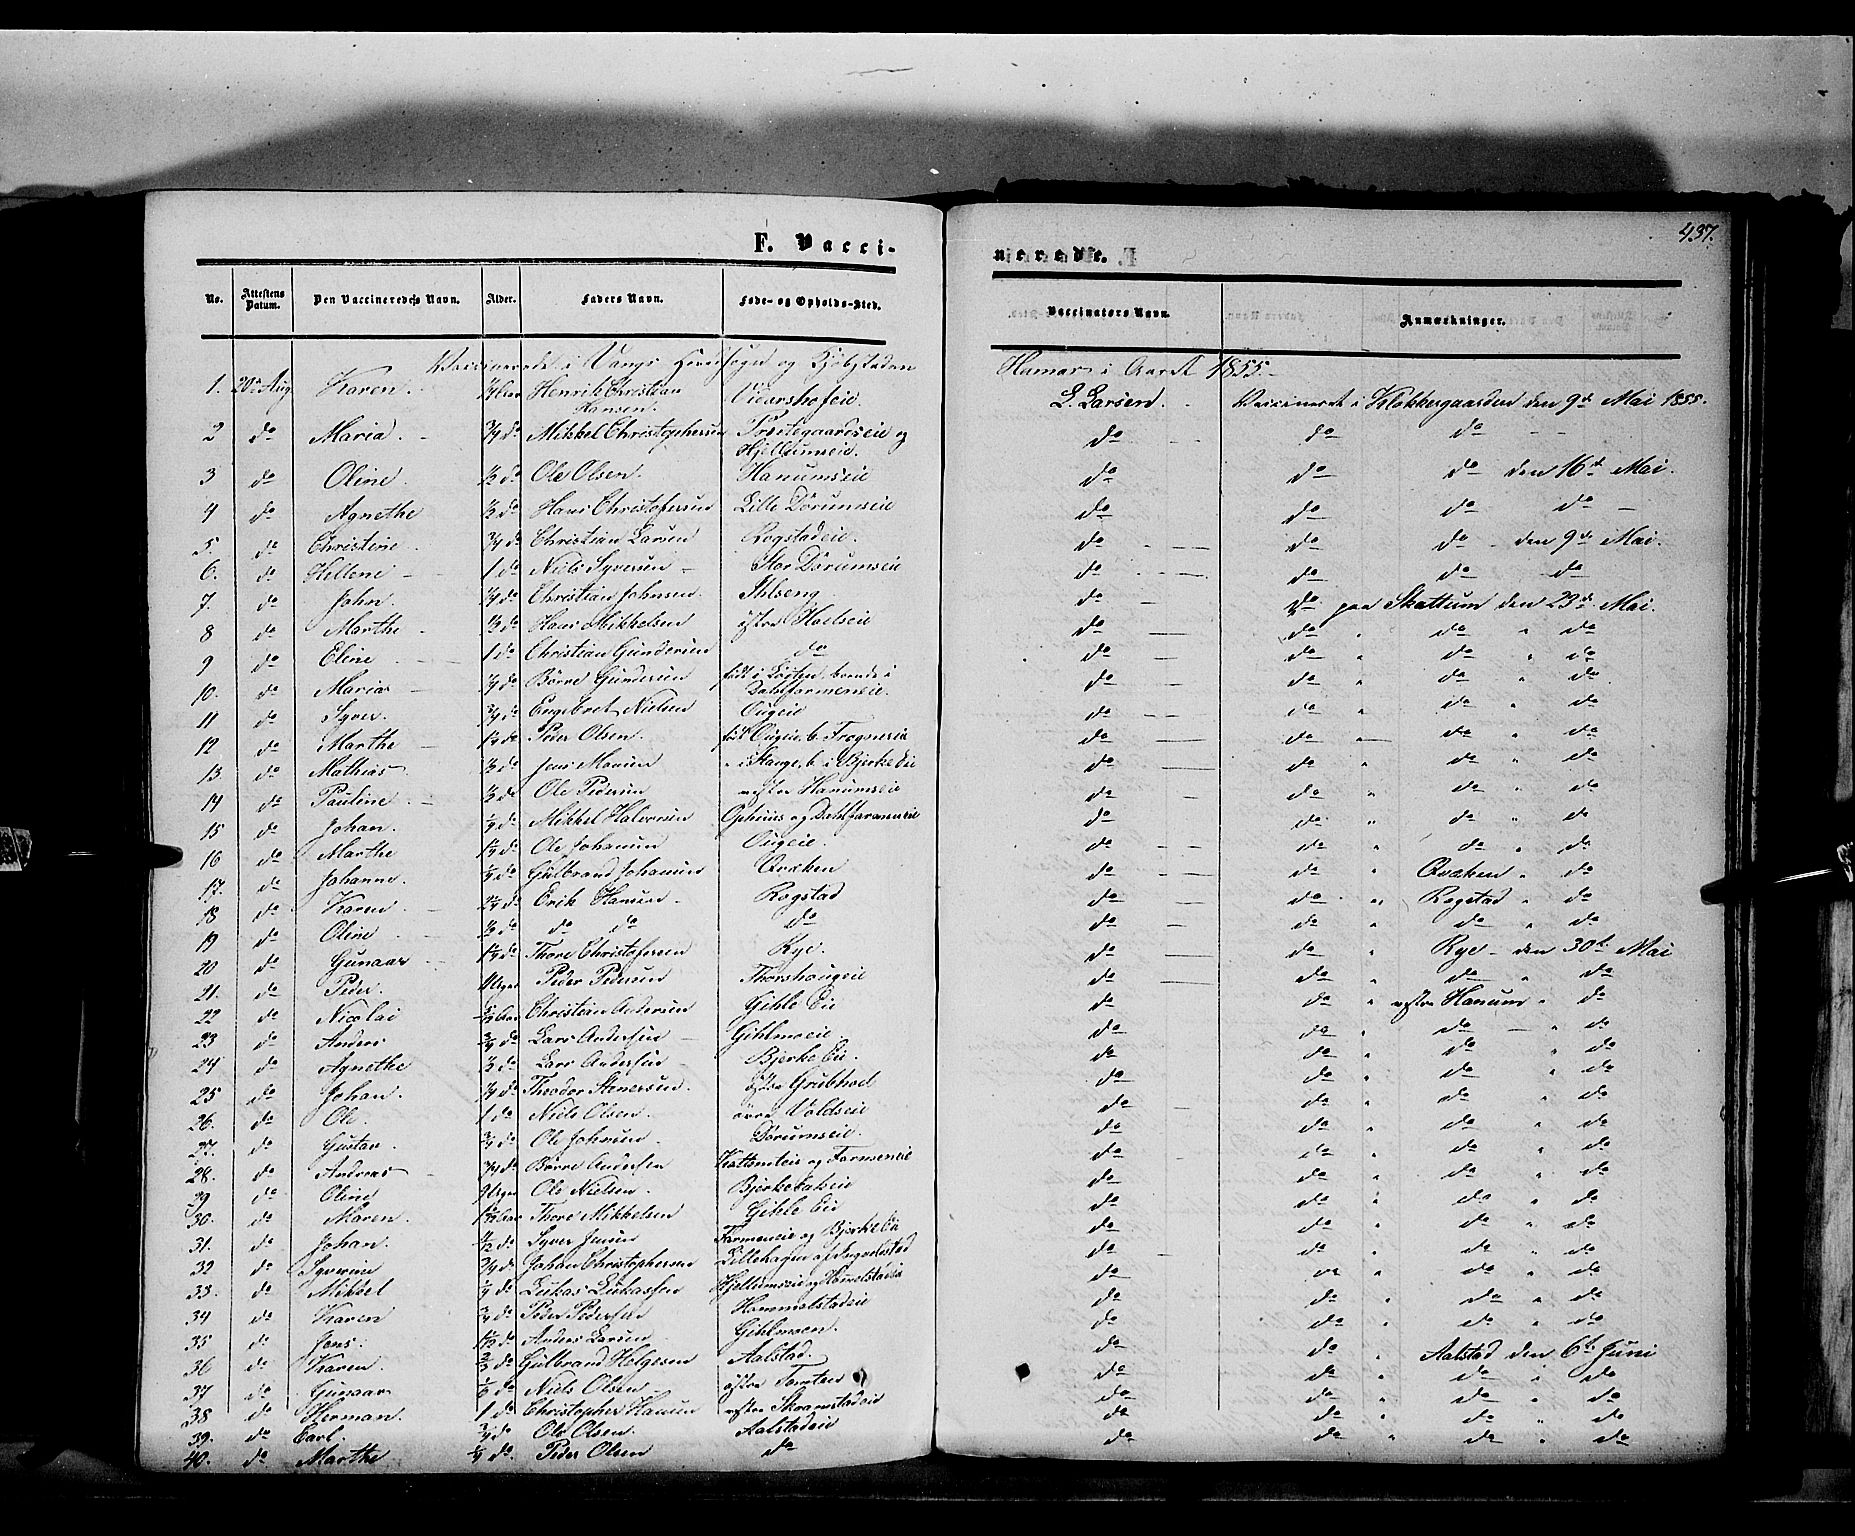 437.
F. Vacci-
nerede.
No. Attestens Datum. Den Vaccineredes Navn. Alder. Faders Navn. Føde- og Opholds-Sted. Vaccinators Navn. Anmærkninger.
Vaccinerede i Vangs Hovedsogn og Kjøbstaden Hamar i Aaret 1855.
1. 20de Aug Karen Henrik Christian Hansen. Vidarshofeie L. Larsen. Vaccineret i Klokkergaarden den 9de Mai 1855.
2 do Maria. 3/4 do Mikkel Christophersen Præstegaardseie og Hjellumseie. do do do
3 do Oline 1/2 do Ole Olsen. Hanumseie do do do den 16de Mai.
4 do Agnethe 1/2 do Hans Christofersen Lille Dørumseie do do do do
5. do Christine 3/4 do Christian Larsen Rogstadeie do do do den 9de Mai.
6. do Hellene 1 do Niels Syversen Stor Dørumseie do do do do
7. do John. do Christian Johnsen. Ihlseng do do paa Skattum den 23de Mai.
8 do Marthe 1/2 do Hans Mikkelsen østre Hoelseie do do do do
9 do Eline 1 do Christian Gundersen do do do do do
10. do Marias do Børre Gundersen født i Løiten, boende i Dahlfarmeneie. do do do do
11 do Syver 3/4 do Engebret Nielsen Ougeie do do do do
12 do Marthe do Peder Olsen. født Ougeie, b. Frognereie do do do do
13. do Mathias 1/2 do Jens Monsen - i Stange, b. i Bjerke Eie do do do do
14 do Pauline 1/2 do Ole Pedersen vestre Hanumseie do do do do
15 do Johan. do Mikkel Halvorsen Ophuus og Dahlfarmeneie do do do do
16 do Marthe do Ole Johansen Ougeie. do do do do
17. do Johanne. do Gulbrand Johansen Qvæken do do Qvæken do
18 do Karen do Erik Hansen Rogstad do do Rogstad do
19 do Oline do do do do do do do do
20 do Gunaar do Thore Christofersen Rye. do do Rye - den 30te Mai
21. do Peder. Uger Peder Pedersen Thorshougeie do do do do
22 do Nicolai Aar Christian Andersen Gihle Eie do do vestre Hanum do
23 do Anders 3/4 do Lars Andersen Gihlmoeie do do do do
24 do Agnethe 1/2 do Lars Andersen Bjerke Eie. do do do do
25 do Johan. do Theodor Stenersen. østre Grubhoel do do do do
26. do Ole. 1 do Niels Olsen. øvre Voldseie do do do do
27. do Gustav. 3/4 do Ole Johnsen Dørumseie. do do do do
28. do Andreas 3/4 do Børre Andersen og Farmeneie do do do do
29 do Oline 9 Uger Ole Nielsen. Bjerkebakeie do do do do
30. do Maren. Aar Thore Mikkelsen Gihle Eie do do do do
31. do Johan. do Syver Jensen Farmeneie og Bjerke Eie do do do do
32 do Syverine 3/4 do Johan Christophersen Lillehagen af Ingvoldstad do do do do
33. do Mikkel do Lukas Lukassen Hjellumseie og Hommelstadeie do do do do
34 do Karen 3/4 do Peder Pedersen Hommelstadeie do do do do
35 do Jens. do Anders Larsen Gihlmoen. do do do do
36 do Karen. do Gulbrand Helgesen Aalstad. do do Aalstad den 6te Juni
37 do Gunaar do Niels Olsen østre Tomten do do do do
38 do Herman. 1 do Christopher Hansen vestre Skramstadeie do do do do
39. do Carl. 3/4 do Ole Olsen. Aalstadeie do do do do
40. do Marthe do Peder Olsen do do do do do